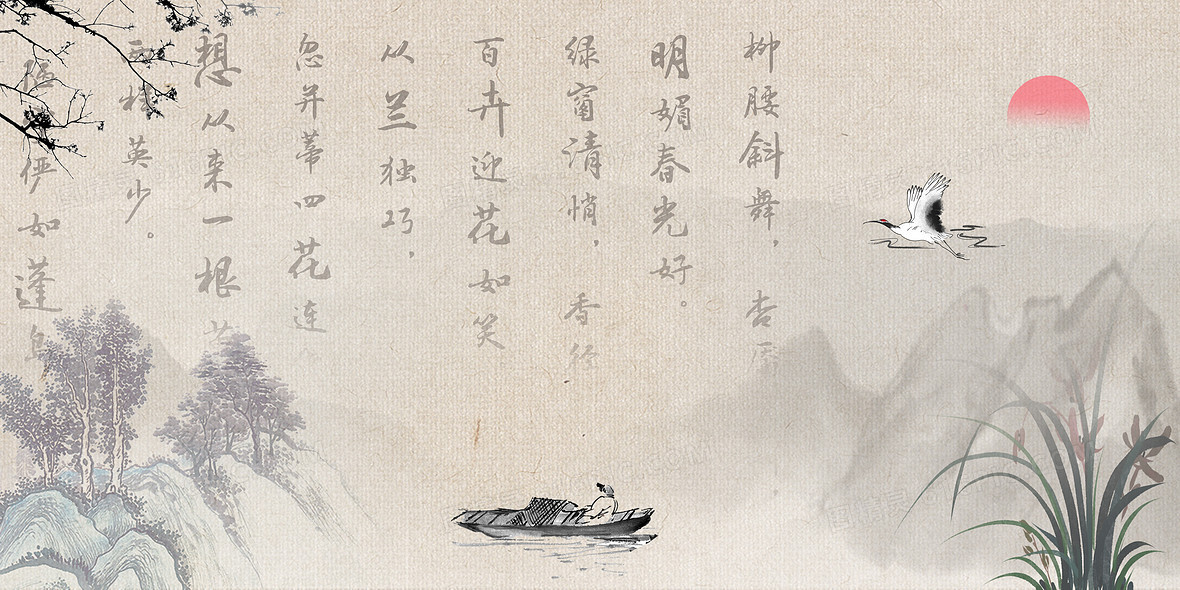 柳腰斜舞，杏
明媚春光好。
绿窗清悄，香径
百卉迎花如笑
从兰独巧，
忽并蒂四花连
想从来一根
英少。
俨如蓬岛